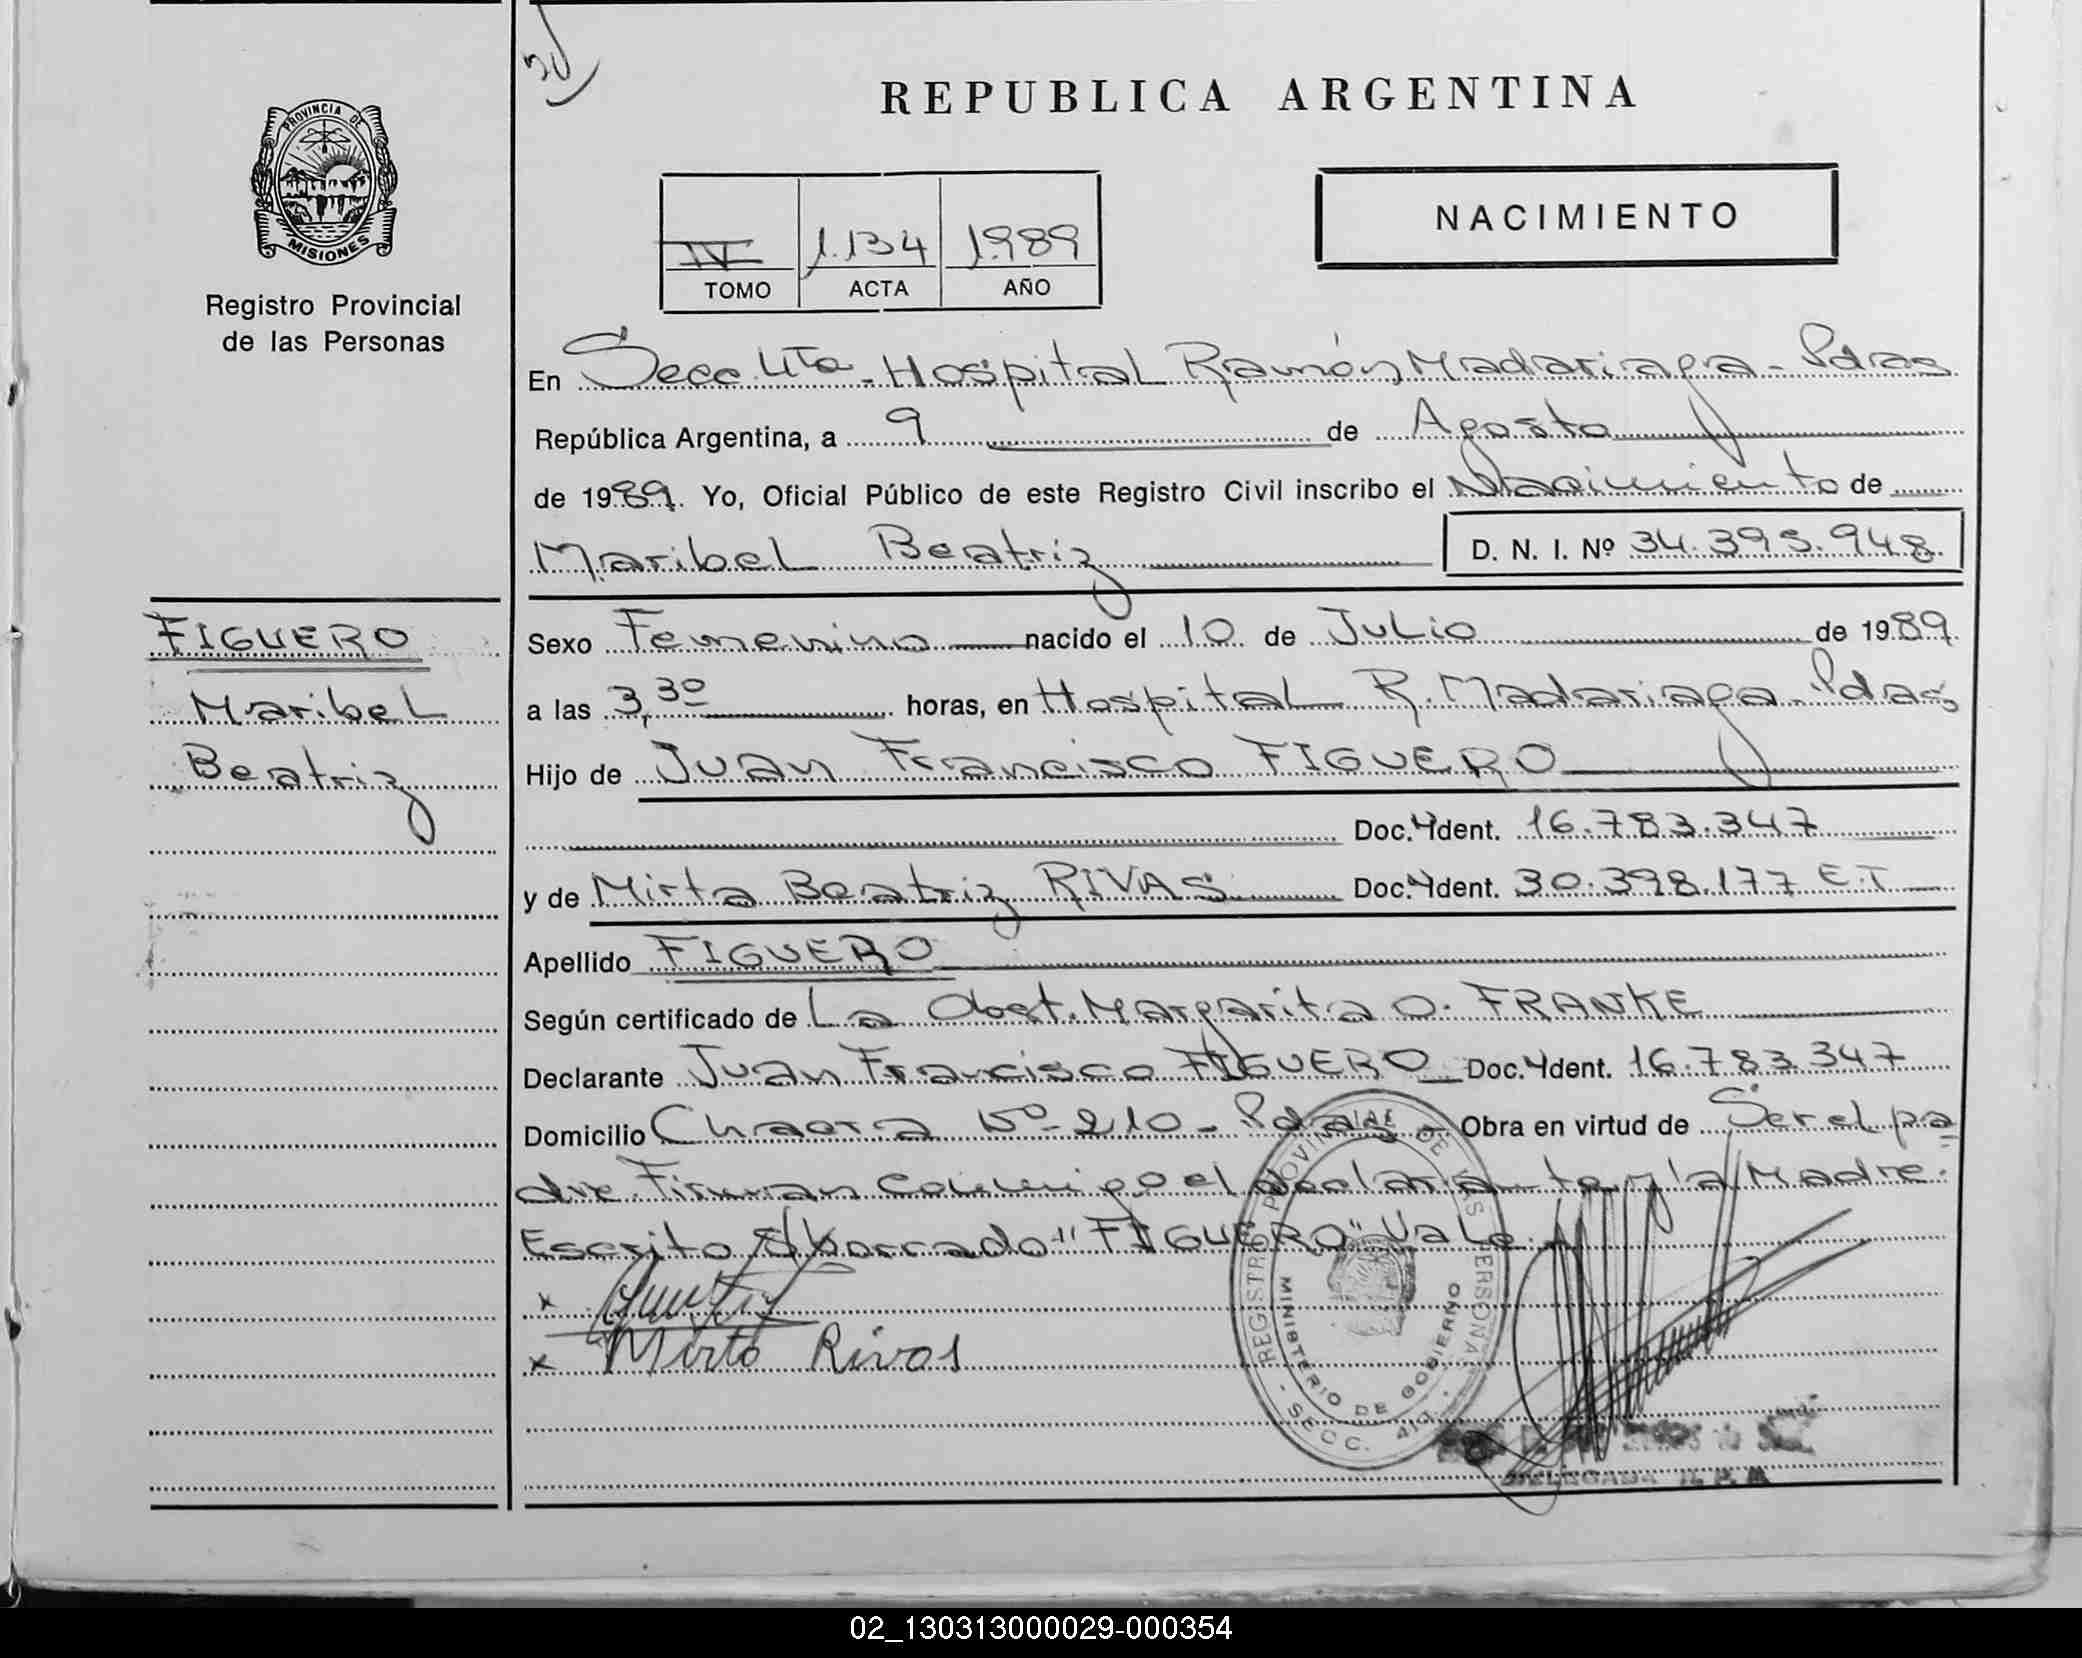 REPUBLICA ARGENTINA
PROVINCIA DE
MISIONES
Registro Provincial
de las Personas
IV 1.134 1989
TOMO ACTA AÑO
NACIMIENTO
En Secc 4ta - Hospital Ramón Madariaga - Pdas
República Argentina, a 9 de Agosto
de 1989. Yo, Oficial Público de este Registro Civil inscribo el Nacimiento de
Maribel Beatriz D. N. I. Nº 34.395.948
FIGUERO
Maribel
Beatriz
Sexo Femenino nacido el 10 de Julio de 1989.
a las 3,30 horas, en Hospital R. Madariaga - Pdas
Hijo de Juan Francisco FIGUERO
Doc. Ydent. 16.783.347
y de Mirta Beatriz RIVAS Doc. Ydent. 30.398.177 E.T
Apellido FIGUERO
Según certificado de La Obst. Margarita O. FRANKE
Declarante Juan Francisco FIGUERO Doc. Ydent. 16.783.347
Domicilio Chacra Nº 210 - Pdas - Obra en virtud de Ser el pa
dre. Firman conmigo el declarante y la Madre.
Escrito s/borrado "FIGUERO" Vale.
x
x Mirta Rivas
REGISTRO PROVINCIAL DE LAS PERSONAS
MINISTERIO DE GOBIERNO
- SECC. 4TA. -
DELEGADA R. P. P.
02_130313000029-000354